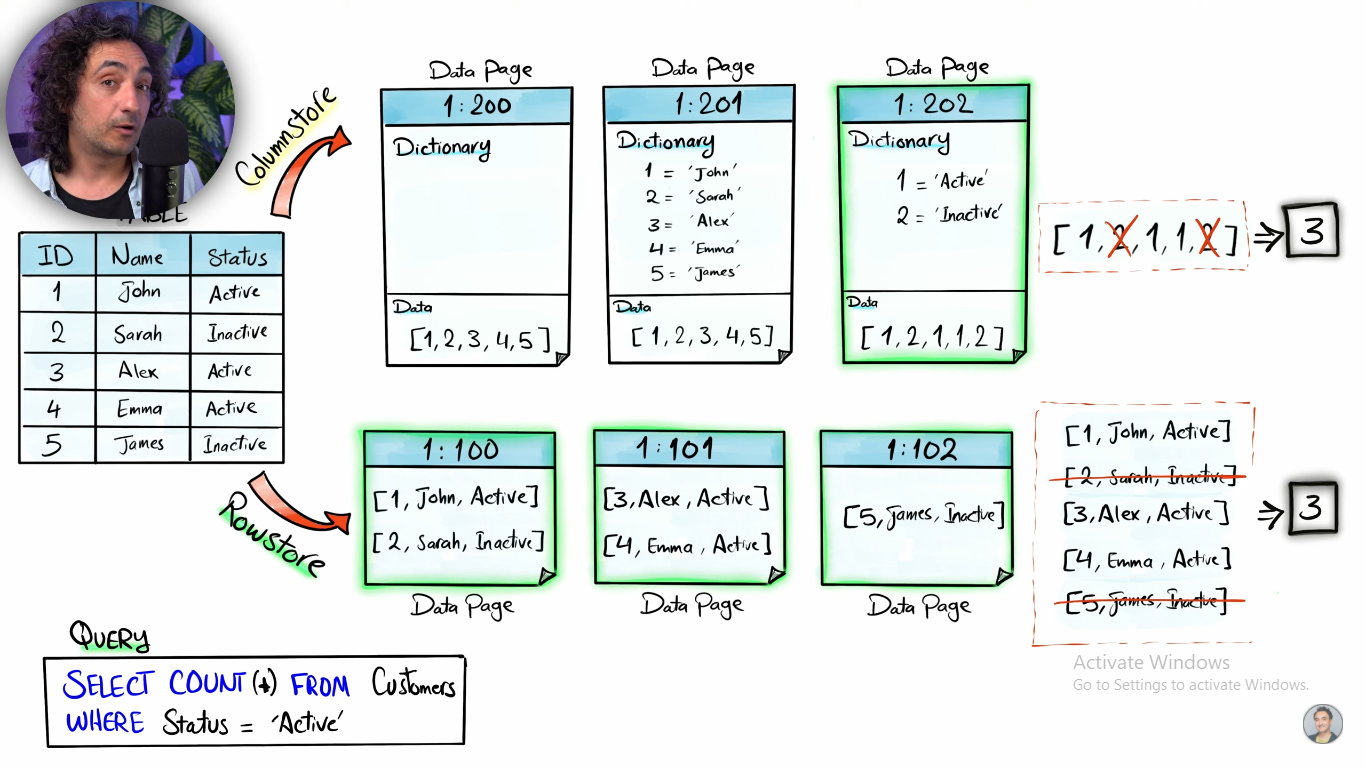 Columnstore
TABLE
ID Name Status
1 John Active
2 Sarah Inactive
3 Alex Active
4 Emma Active
5 James Inactive
Rowstore
Data Page
1:200
Dictionary
Data
[1,2,3,4,5]
Data Page
1:201
Dictionary
1 = 'John'
2 = 'Sarah'
3 = 'Alex'
4 = 'Emma'
5 = 'James'
Data
[1,2,3,4,5]
Data Page
1:202
Dictionary
1 = 'Active'
2 = 'Inactive'
Data
[1,2,1,1,2]
[1,2,1,1,2] ⇒ 3
1:100
[1, John, Active]
[2, Sarah, Inactive]
Data Page
1:101
[3, Alex, Active]
[4, Emma, Active]
Data Page
1:102
[5, James, Inactive]
Data Page
[1, John, Active]
[2, Sarah, Inactive]
[3, Alex, Active]
[4, Emma, Active]
[5, James, Inactive]
⇒ 3
QUERY
SELECT COUNT(*) FROM Customers
WHERE Status = 'Active'
Activate Windows
Go to Settings to activate Windows.